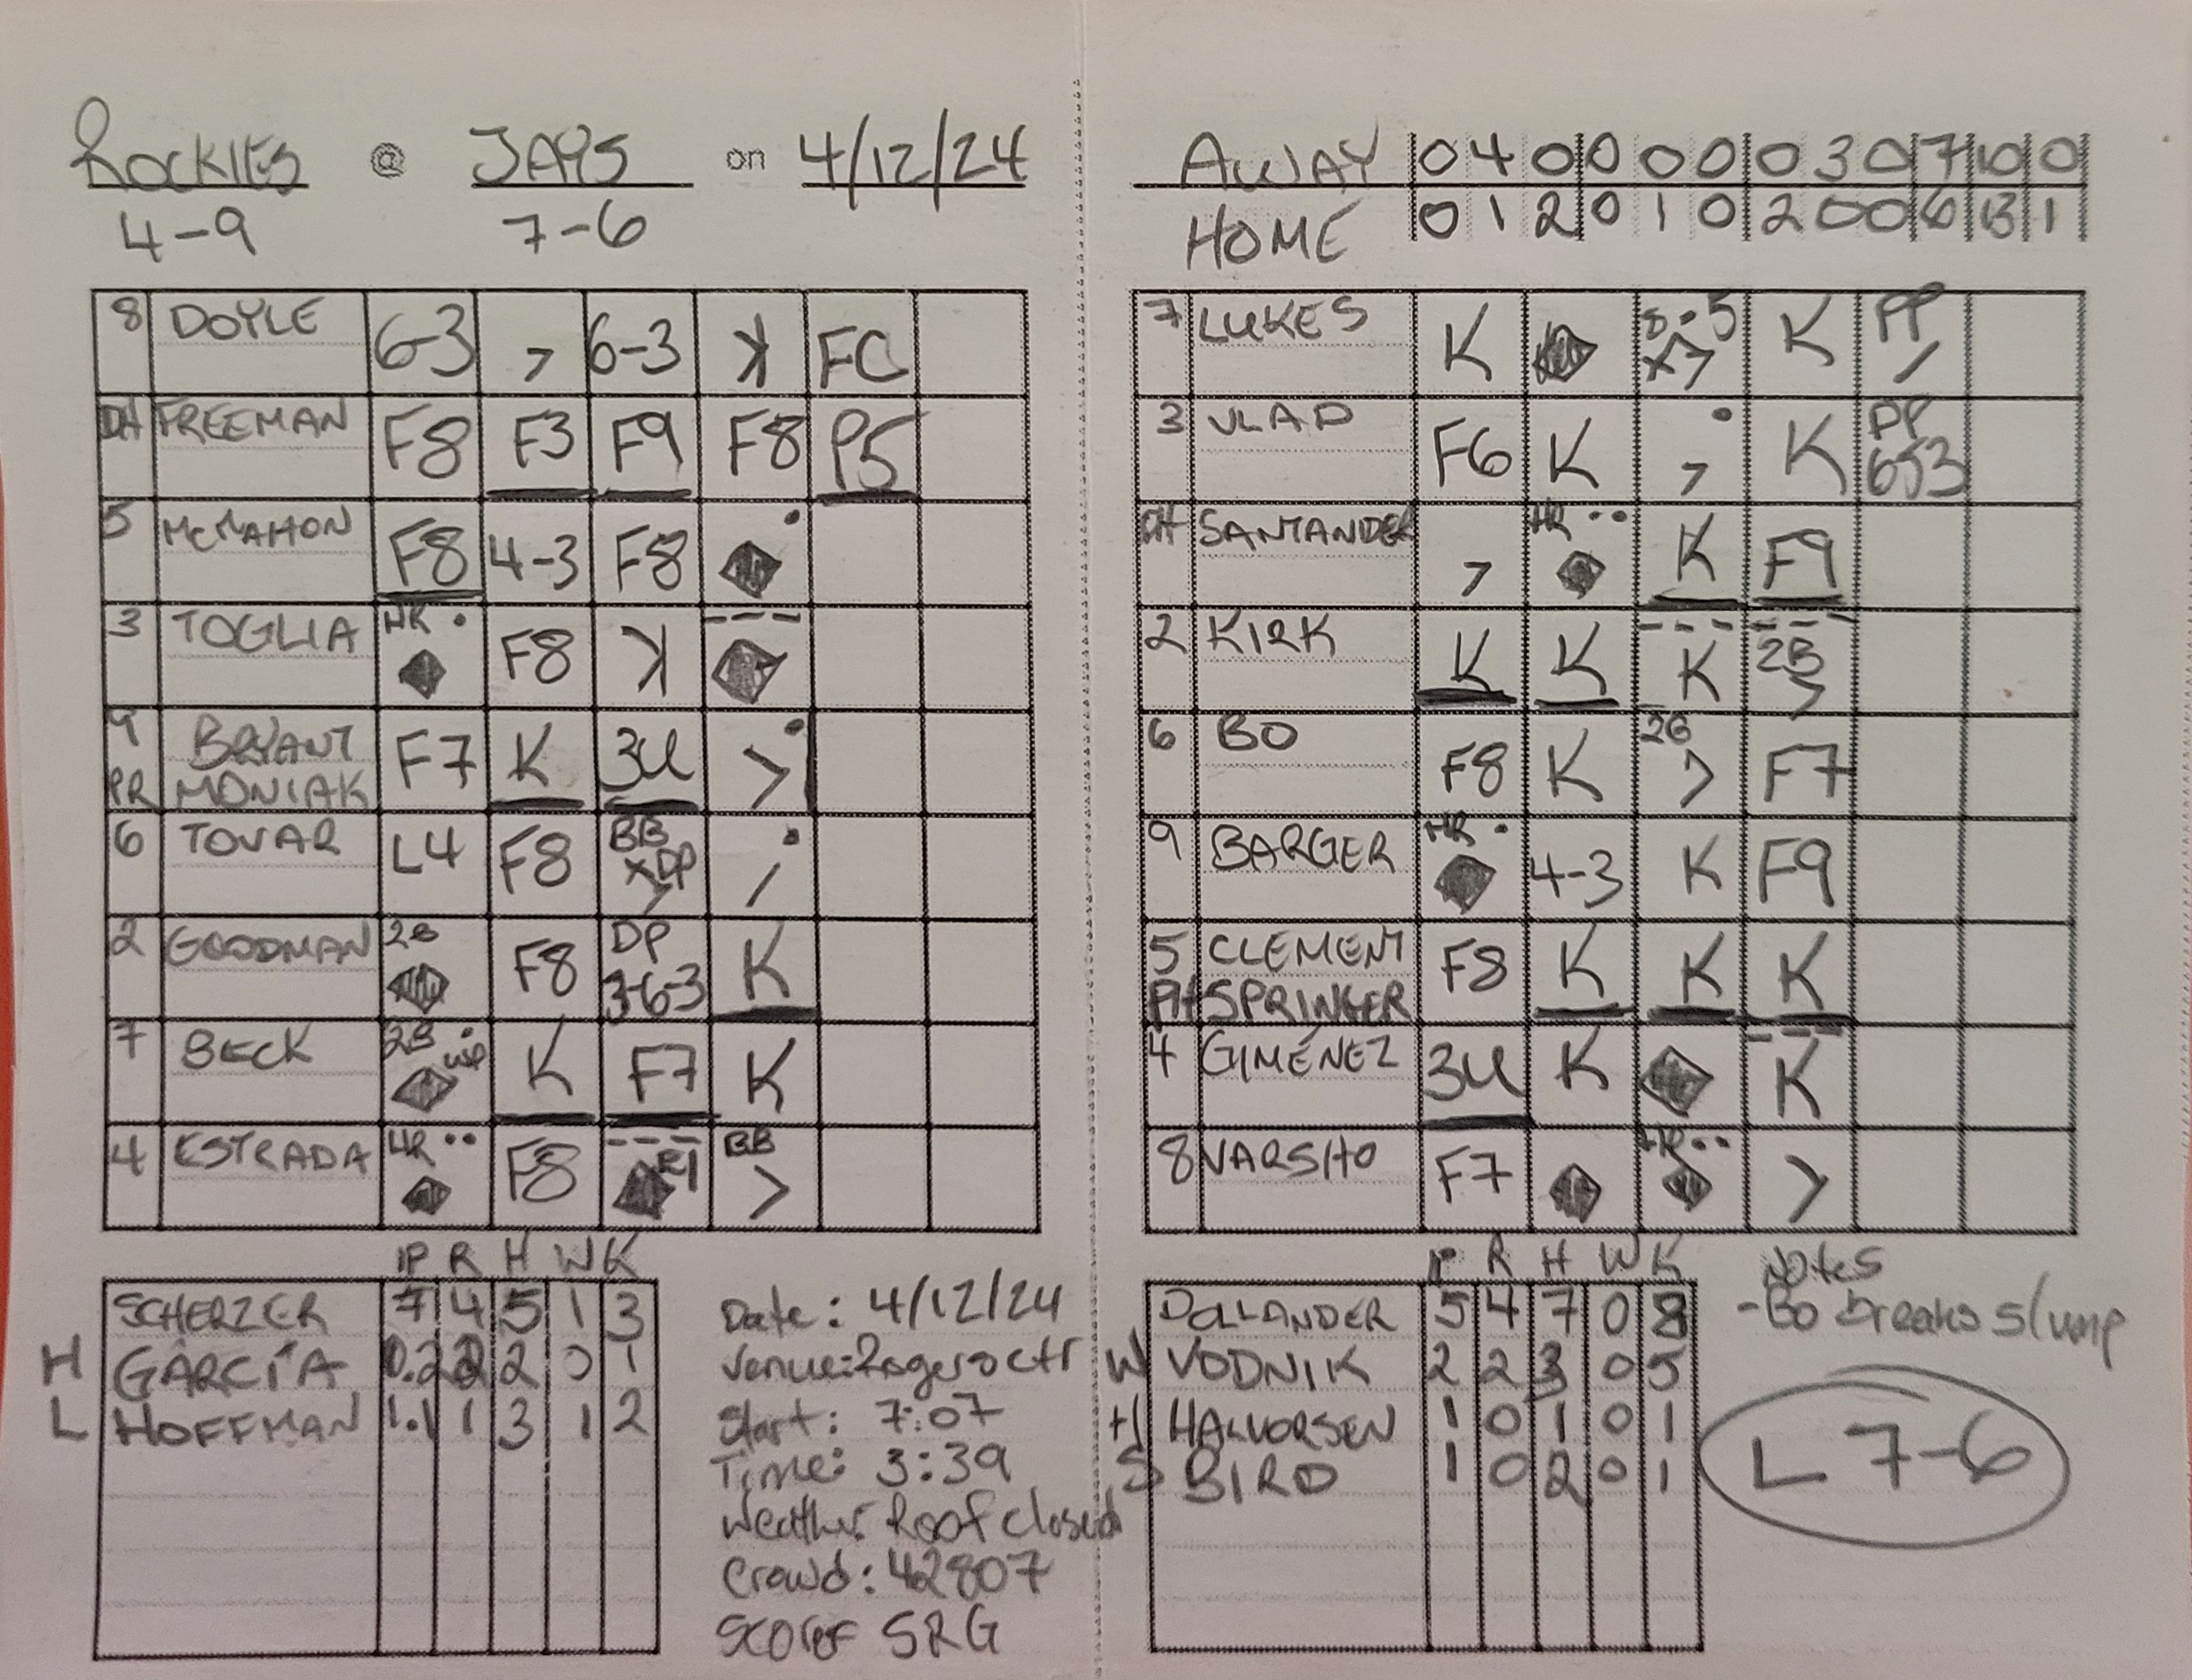 ROCKIES @ JAYS on 4/12/24
4-9 7-6
8 DOYLE 6-3 > 6-3 ꓘ FC
DH FREEMAN F8 F3 F9 F8 P5
5 McMAHON F8 4-3 F8
3 TOGLIA HR F8 ꓘ
9 BRYANT F7 K 3U >
PR MONIAK
6 TOVAR L4 F8 BB XDP > /
2 GOODMAN 2B F8 DP 3-6-3 K
7 BECK 2B WP K F7 K
4 ESTRADA HR F8 R1 BB >
IP R H W K
SCHERZER 7 4 5 1 3
H GARCÍA 0.2 2 2 0 1
L HOFFMAN 1.1 1 3 1 2
Date: 4/12/24
Venue: Rogers Ctr
Start: 7:07
Time: 3:39
Weather: Roof closed
Crowd: 42807
Scorer SRG
AWAY 0 4 0 0 0 0 0 3 0 7 10 0
HOME 0 1 2 0 1 0 2 0 0 6 13 1
7 LUKES K 8-5 X7 > K PP /
3 VLAD F6 K > K DP 653
DH SANTANDER > HR K F9
2 KIRK K K K 2B >
6 BO F8 K 2B > F7
9 BARGER HR 4-3 K F9
5 CLEMENT F8 K K K
PH SPRINGER
4 GIMÉNEZ 3U K K
8 VARSHO F7 HR >
IP R H W K
DOLLANDER 5 4 7 0 8
W VODNIK 2 2 3 0 5
H HALVORSEN 1 0 1 0 1
S BIRD 1 0 2 0 1
Notes
- Bo breaks slump
L 7-6